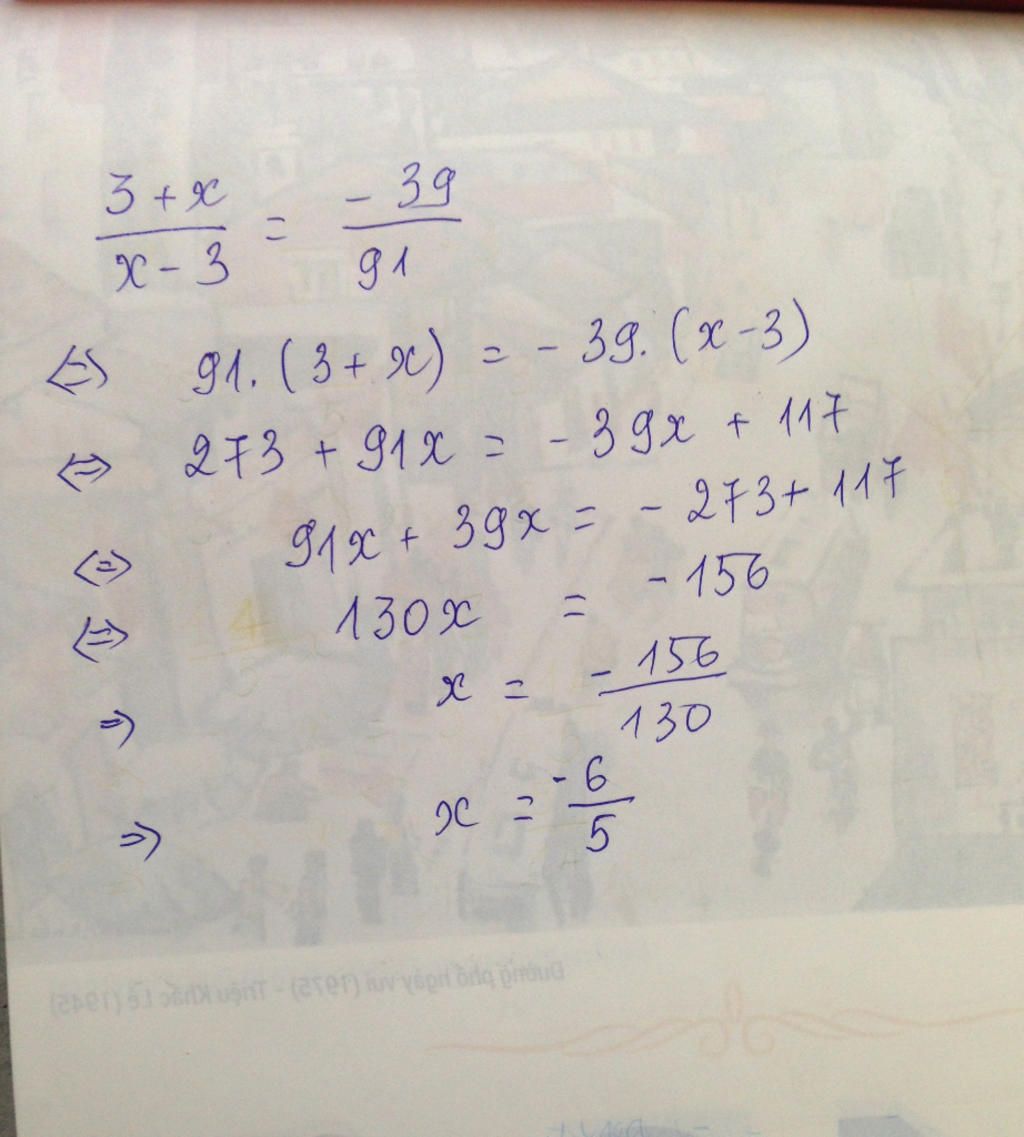 3 + x / x - 3 = - 39 / 91
<=> 91. (3 + x) = - 39. (x - 3)
<=> 273 + 91x = - 39x + 117
<=> 91x + 39x = - 273 + 117
<=> 130x = - 156
=> x = - 156 / 130
=> x = - 6 / 5
Đường phố ngày vui (1975) - Triệu Khắc Lễ (1945)